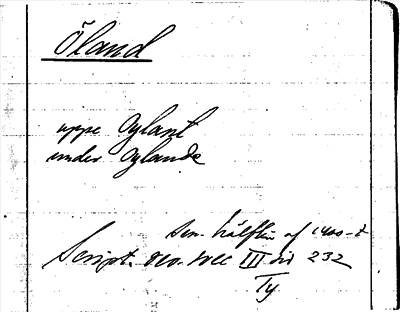 Öland
uppe Øylant
under Øylande
sen. hälften af 1400-t
Script. rer. svec III sid 232
Ty